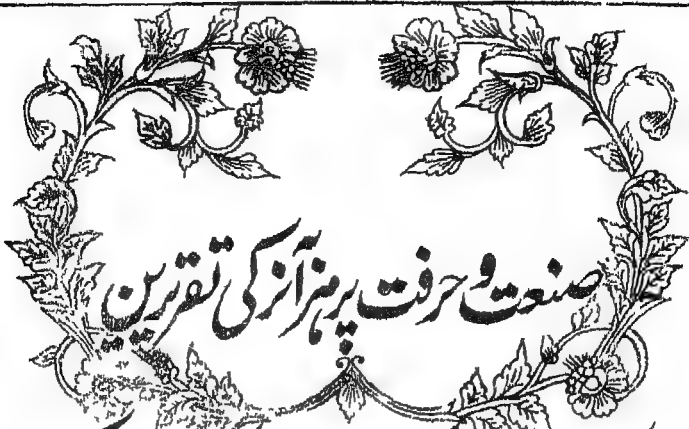 صنعت و حرفت پر ہز آنر کی تقریریں